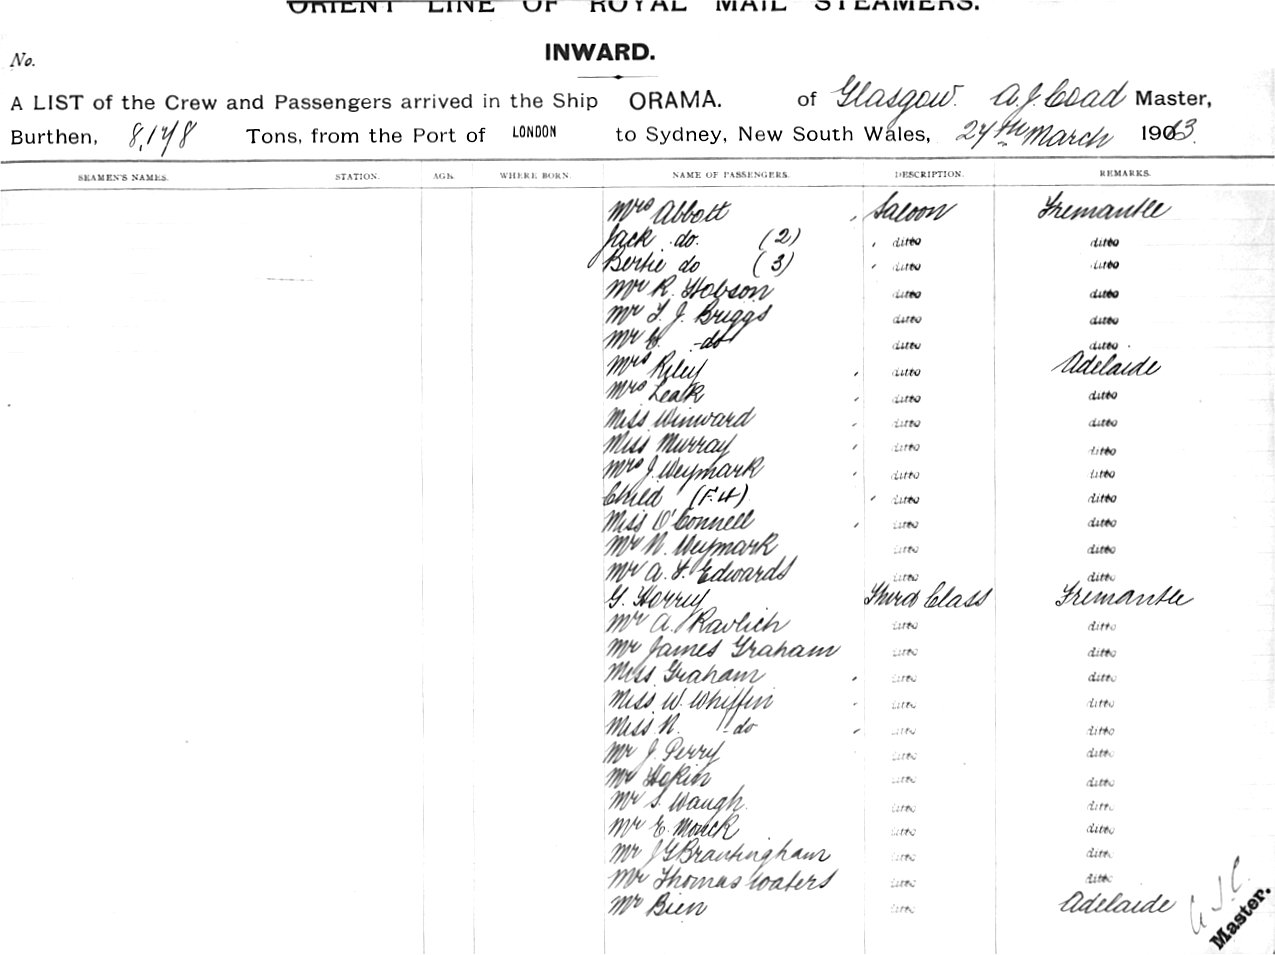 ORIENT LINE OF ROYAL MAIL STEAMERS.
INWARD.
No.
A LIST of the Crew and Passengers arrived in the Ship ORAMA. of Glasgow. A. J. Coad Master,
Burthen, 8,178 Tons, from the Port of LONDON to Sydney, New South Wales, 24th March 1913.
SEAMEN'S NAMES. STATION. AGE. WHERE BORN. NAME OF PASSENGERS. DESCRIPTION. REMARKS.
Mrs Abbott Saloon Fremantle
Jack do. (2) ditto ditto
Bertie do (3) ditto ditto
Mr R. Hobson ditto ditto
Mr F. J. Briggs ditto ditto
Mr C. do ditto ditto
Mrs Riley ditto Adelaide
Mrs Leak ditto ditto
Miss Winward ditto ditto
Miss Murray ditto ditto
Mrs J. Weymark ditto ditto
Child (F. 4) ditto ditto
Miss O'Connell ditto ditto
Mr N. Weymark ditto ditto
Mr A. F. Edwards ditto ditto
G. Horry Third Class Fremantle
Mr A. Ravlich ditto ditto
Mr James Graham ditto ditto
Miss Graham ditto ditto
Miss W. Whiffin ditto ditto
Miss N. do ditto ditto
Mr J. Perry ditto ditto
Mr Hokin ditto ditto
Mr S. Waugh ditto ditto
Mr E. Monck ditto ditto
Mr J G Brantingham ditto ditto
Mr Thomas Waters ditto ditto
Mr Bien ditto Adelaide
A J C.
Master.